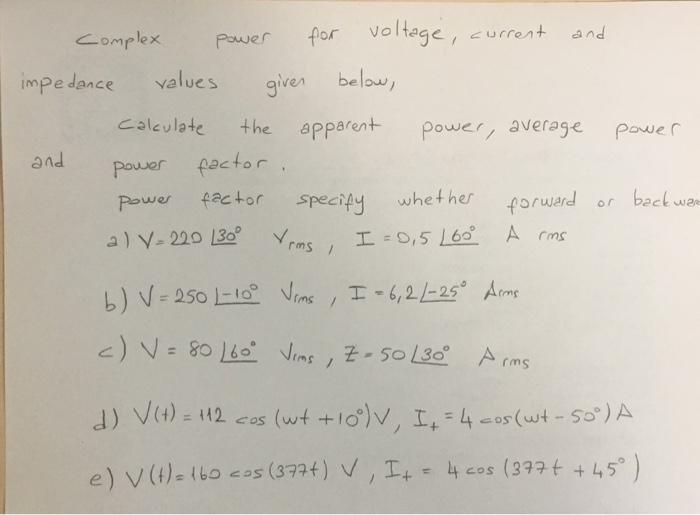 Complex power for voltage, current and
impedance values given below,
Calculate the apparent power, average power
and power factor.
power factor specify whether forward or backwar
a) V=220 ∠30° Vrms, I=0,5 ∠60° A rms
b) V=250 ∠-10° Vrms, I=6,2 ∠-25° Arms
c) V = 80 ∠60° Vrms, Z=50 ∠30° Arms
d) V(t) = 112 cos (wt +10°)V, I+ = 4 cos(wt - 50°) A
e) V(t)=160 cos (377t) V, I+ = 4 cos (377t + 45°)